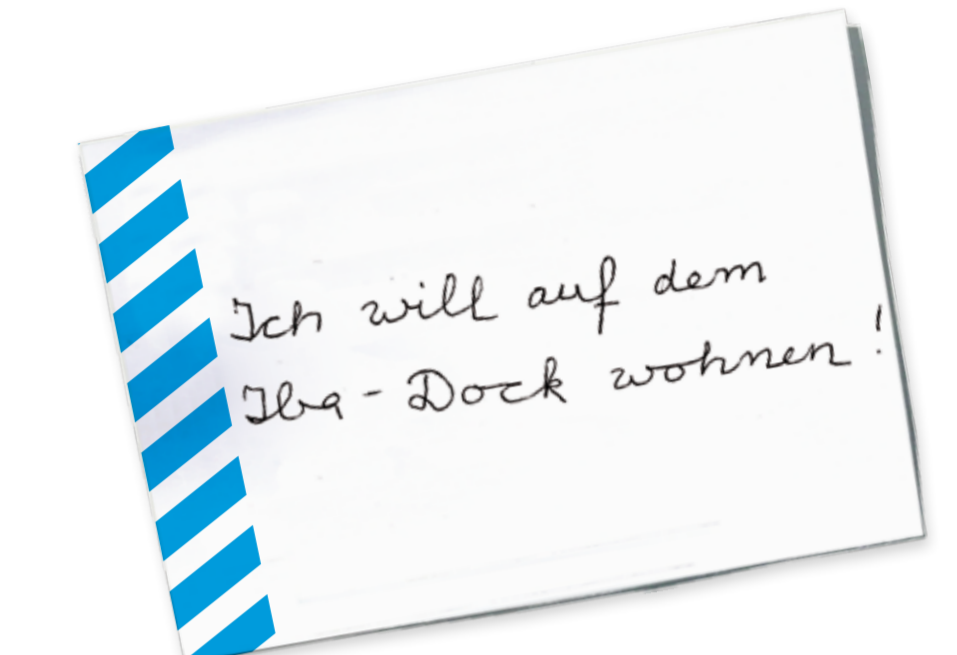 Ich will auf dem
Iba-Dock wohnen!